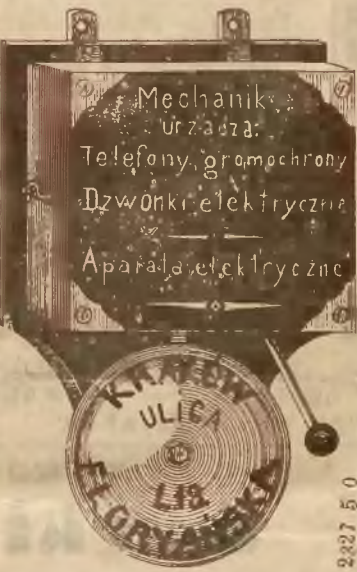 Mechanik
urządza:
Telefony, gromochrony
Dzwonki elektryczne
Aparata elektryczne
KRAKÓW
ULICA
FLORYAŃSKA
2327 5 0